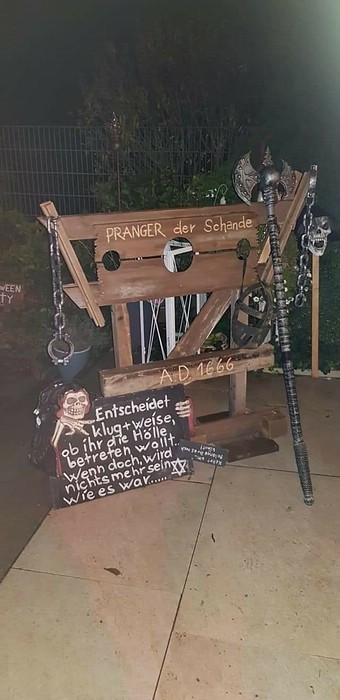 PRANGER der Schande
WEEN
TY
A.D. 1666
Entscheidet
klug+weise,
ob ihr die Hölle
betreten wollt..
Wenn doch, wird
nichts mehr sein
wie es war.....